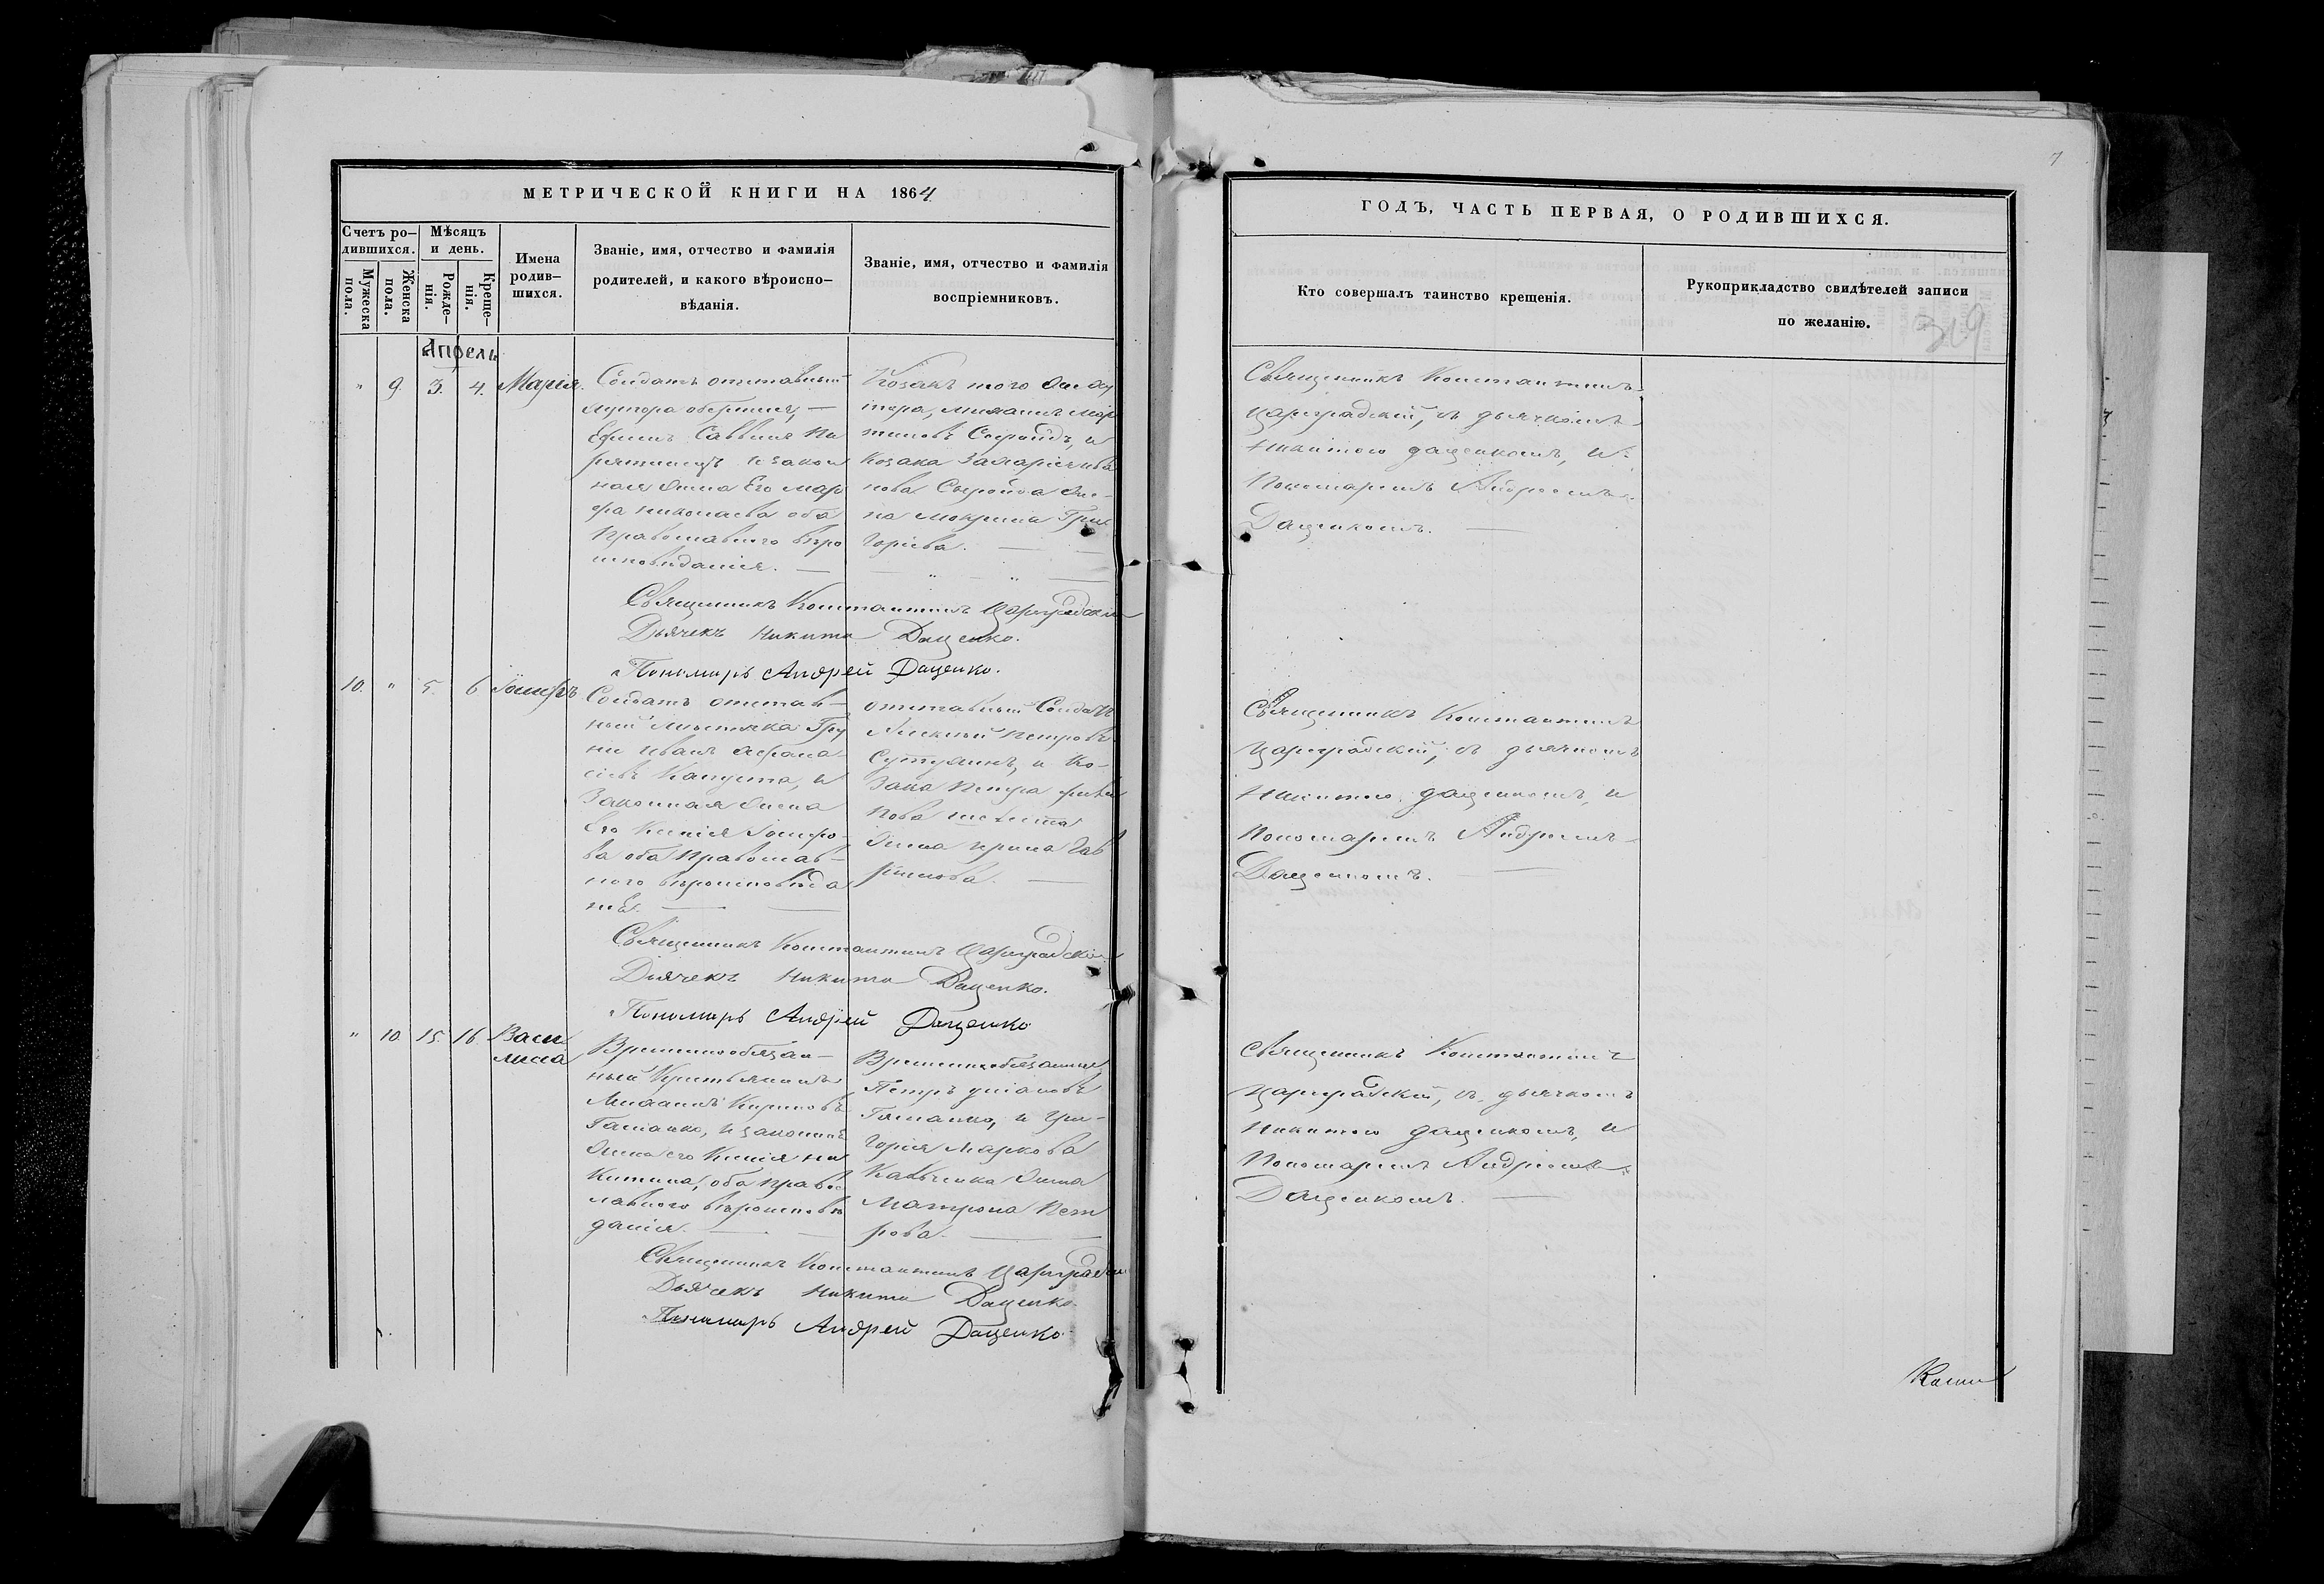 МЕТРИЧЕСКОЙ КНИГИ НА 1864
Счетъ ро-
дившихся.
Мужеска пола.
Женска пола.
Мѣсяцъ
и день.
Рожде-
нія.
Креще-
нія.
Имена
родив-
шихся.
Званіе, имя, отчество и фамилія
родителей, и какого вѣроиспо-
вѣданія.
Званіе, имя, отчество и фамилія
воспріемниковъ.
Апрель
" 9. 3. 4. Марія.
Солдатъ отставный
хутора
Ефимъ Саввинъ
и закон
ная жена Его Мар
фа Николаева оба
Православного вѣро
исповѣданія. —
Козакъ того же ху
тора, Михаилъ Мар
тиновъ и
Козака Захарія Ива
нова же-
на Мокрина Гри
горіева. —
Священникъ Константинъ Цариградскій
Дьячекъ Никита Даценко.
Пономарь Андрей Даценко.
10. " 5. 6 Іосифъ
Солдатъ отстав-
ный мѣстечка Гру
ни Иванъ Афана
сіевъ Капуста, и
Законная жена
Его Ксенія Іосифо-
ва оба Православ-
ного вѣроисповѣда
нія. —
отставный Солдатъ
Алексѣй Петровъ
и Ко-
зака Петра
пова
жена Ирина Гав
рилова. —
Священникъ Константинъ Цариградскій
Дьячекъ Никита Даценко.
Пономарь Андрей Даценко
" 10 15. 16. Васи
лиса
Временнообязан-
ный Крестьянинъ
Михаилъ Кириловъ
и законная
жена его Ксенія Ни
китина, оба Правос
лавного вѣроисповѣ
данія. —
Временнообязанный
Петръ
и Гри-
горія Маркова
жена
Матрона Пет
рова. —
Священникъ Константинъ Цариградскій
Дьячекъ Никита Даценко.
Пономарь Андрей Даценко.
7
ГОДЪ, ЧАСТЬ ПЕРВАЯ, О РОДИВШИХСЯ.
Кто совершалъ таинство крещенія.
Рукоприкладство свидѣтелей записи
по желанію.
319
Священникъ Константинъ
Цариградскій, съ дьячкомъ
Никитою Даценкомъ, и
Пономаремъ Андреемъ
Даценкомъ. —
Священникъ Константинъ
Цариградскій, съ дьячкомъ
Никитою Даценкомъ, и
Пономаремъ Андреемъ
Даценкомъ. —
Священникъ Константинъ
Цариградскій, съ дьячкомъ
Никитою Даценкомъ, и
Пономаремъ Андреемъ
Даценкомъ. —